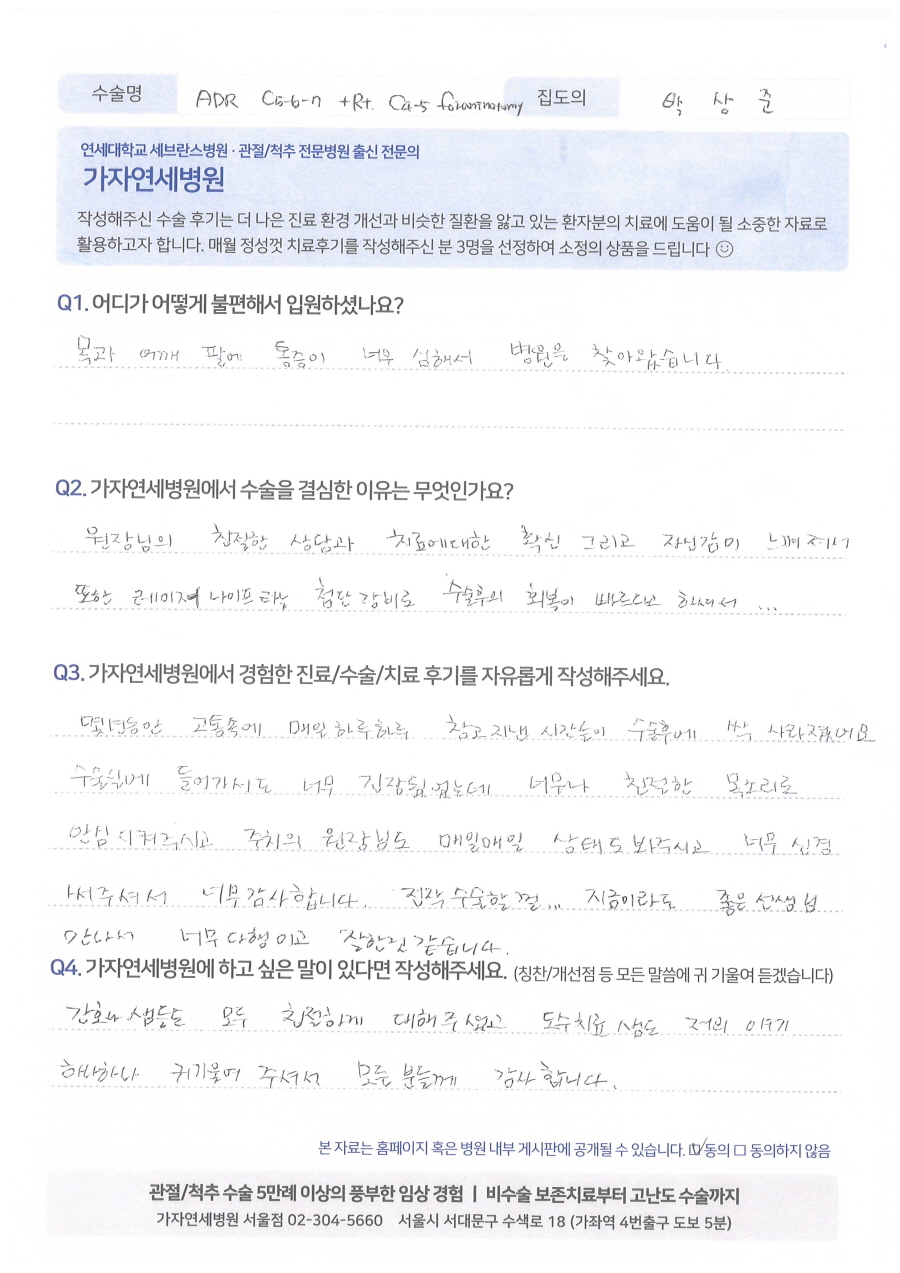 수술명 ADR C5-6-7 +Rt. C4-5 foraminotomy 집도의 박상준
연세대학교 세브란스병원 · 관절/척추 전문병원 출신 전문의
가자연세병원
작성해주신 수술 후기는 더 나은 진료 환경 개선과 비슷한 질환을 앓고 있는 환자분의 치료에 도움이 될 소중한 자료로
활용하고자 합니다. 매월 정성껏 치료후기를 작성해주신 분 3명을 선정하여 소정의 상품을 드립니다 ☺
Q1. 어디가 어떻게 불편해서 입원하셨나요?
목과 어깨 팔에 통증이 너무 심해서 병원을 찾아왔습니다.
Q2. 가자연세병원에서 수술을 결심한 이유는 무엇인가요?
원장님의 친절한 상담과 치료에대한 확신 그리고 자신감이 느껴져서
또한 나이프라는 첨단장비로 수술후의 회복이 빠르다고 하셔서 ...
Q3. 가자연세병원에서 경험한 진료/수술/치료 후기를 자유롭게 작성해주세요.
몇년동안 고통속에 매일하루하루 참고지낸 시간들이 수술후에 싹 사라졌어요
수술실에 들어가서도 너무 긴장됬었는데 너무나 친절한 목소리로
안심시켜주시고 주치의 원장님도 매일매일 상태도봐주시고 너무 신경
써주셔서 너무감사합니다. 진작수술할껄... 지금이라도 좋은선생님
만나서 너무다행이고 잘한것같습니다.
Q4. 가자연세병원에 하고 싶은 말이 있다면 작성해주세요. (칭찬/개선점 등 모든 말씀에 귀 기울여 듣겠습니다)
간호사 샘들도 모두 친절하게 대해주셨고 도수치료 샘도 저의 이야기
하나하나 귀기울여 주셔서 모든분들께 감사합니다.
본 자료는 홈페이지 혹은 병원 내부 게시판에 공개될 수 있습니다. ☑동의 □ 동의하지 않음
관절/척추 수술 5만례 이상의 풍부한 임상 경험 | 비수술 보존치료부터 고난도 수술까지
가자연세병원 서울점 02-304-5660 서울시 서대문구 수색로 18 (가좌역 4번출구 도보 5분)